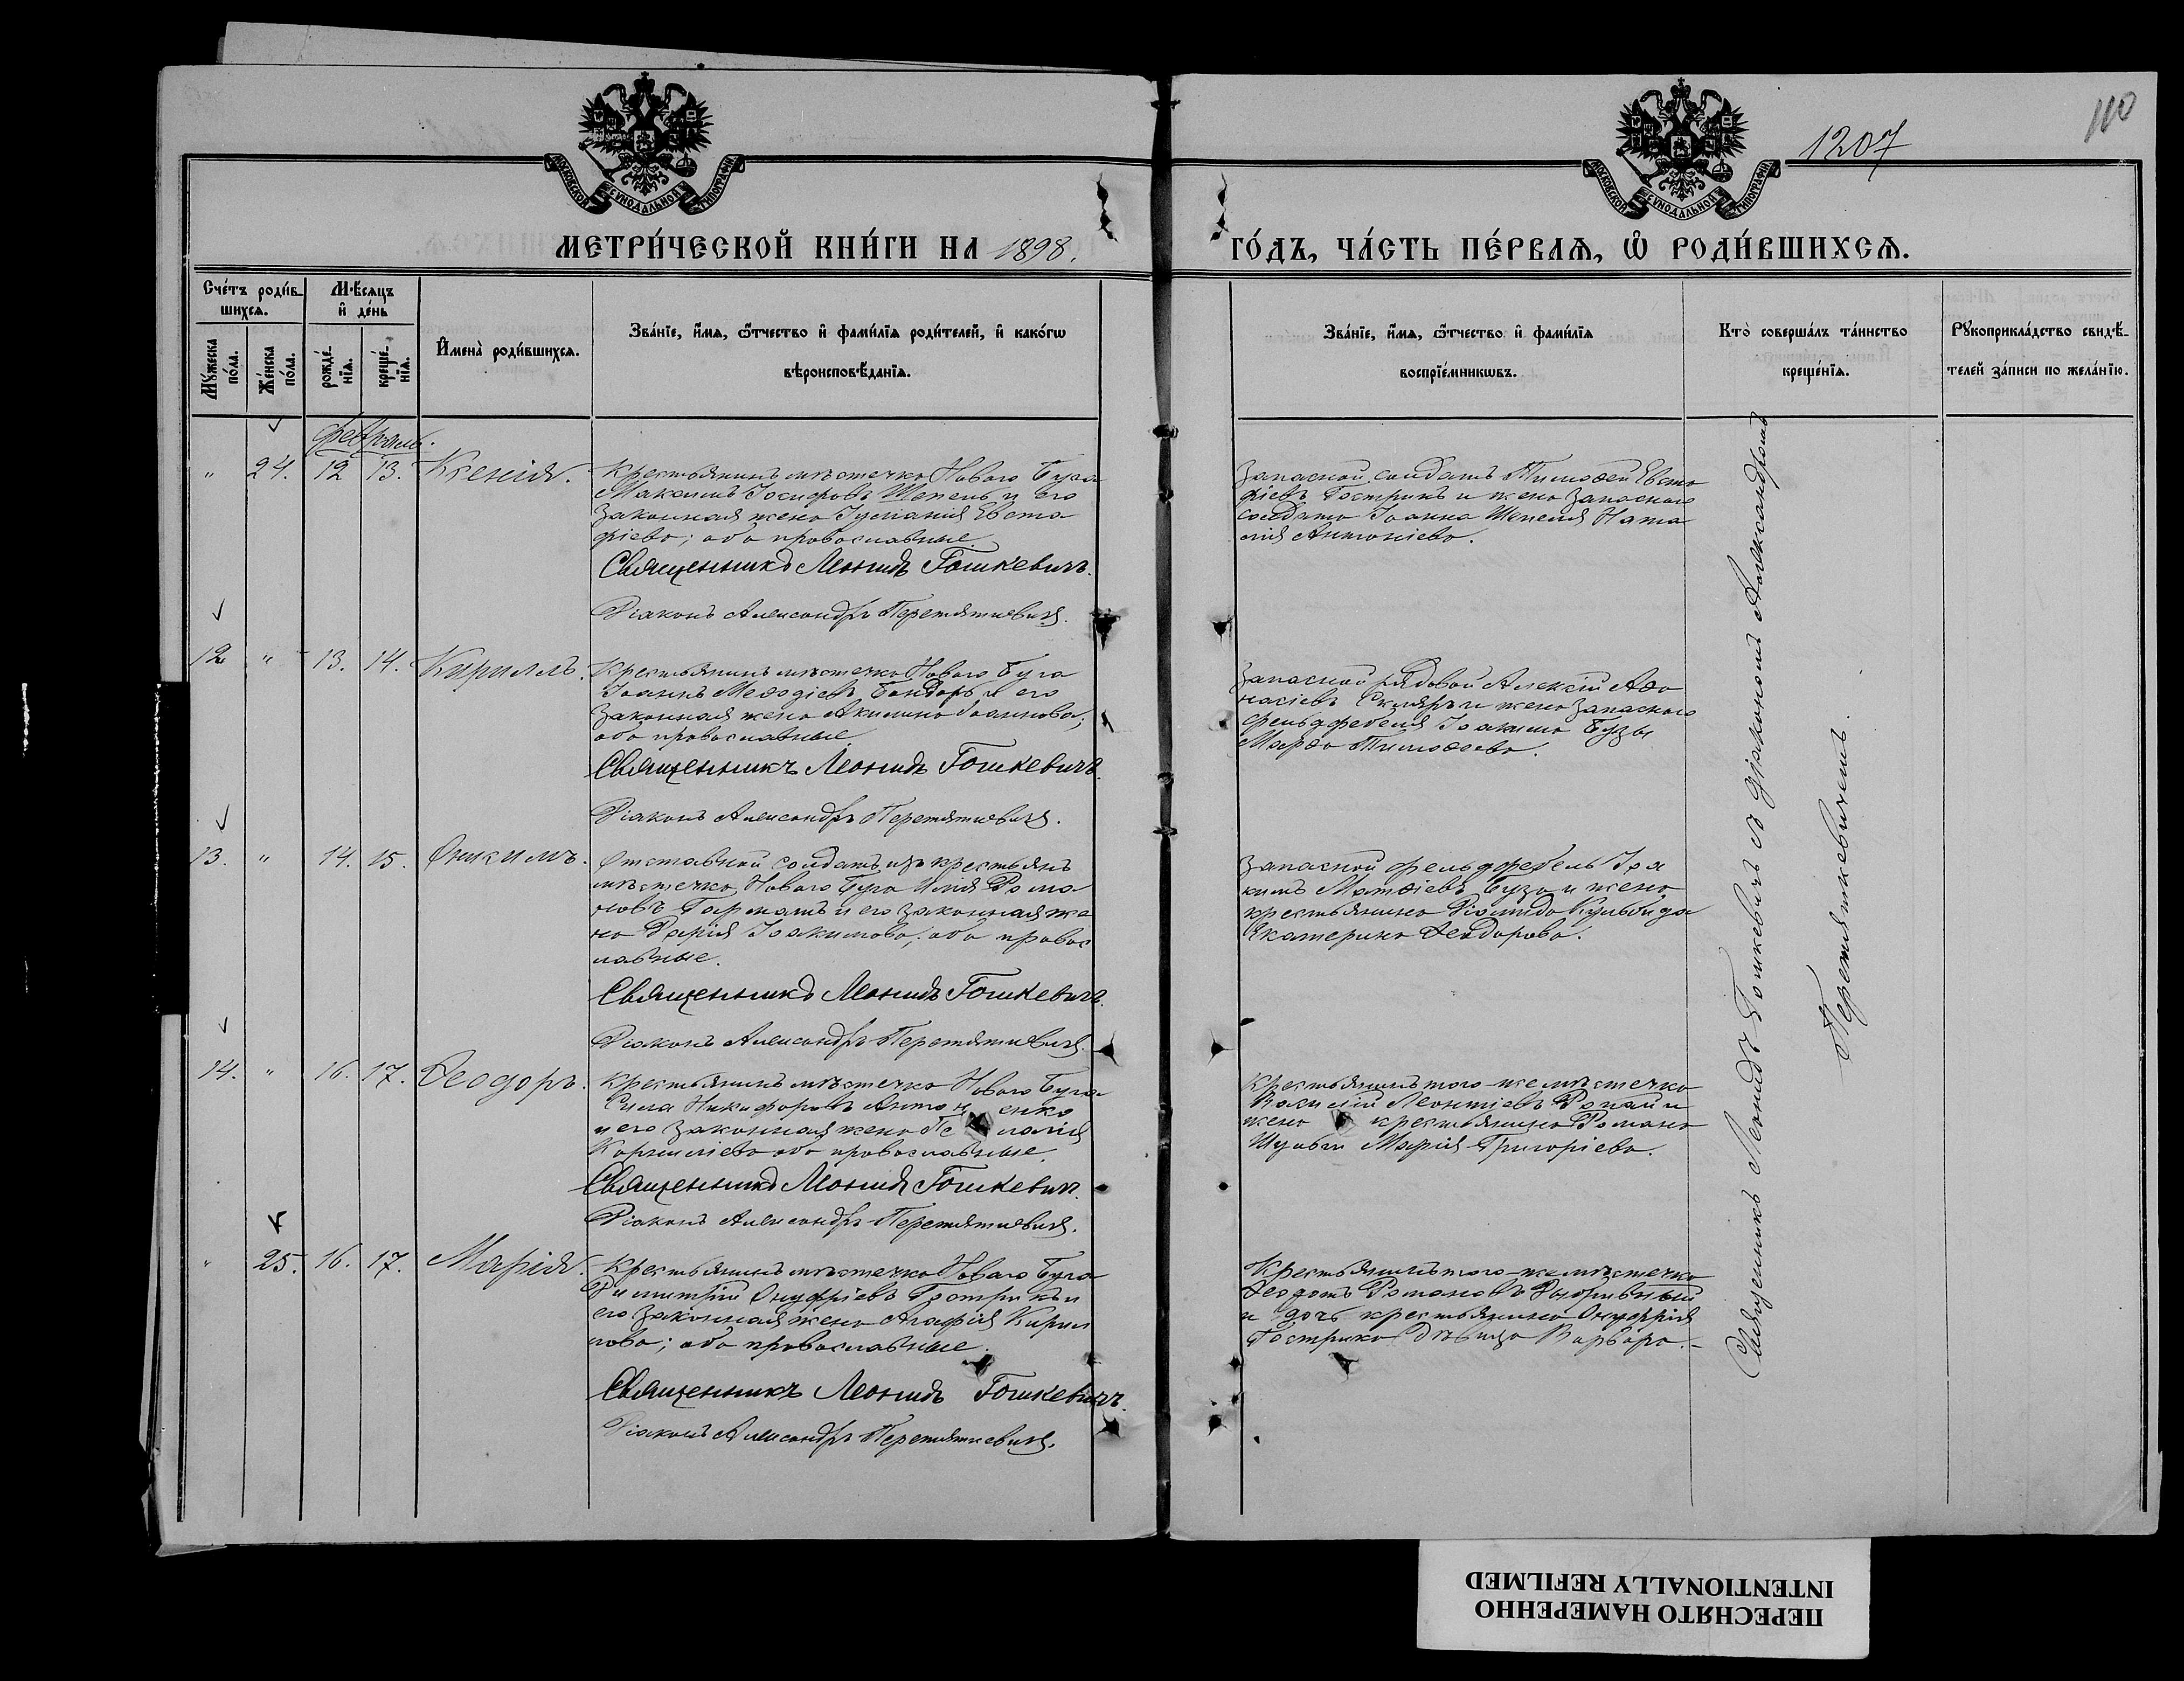 110
1207
МОСКОВСКОЙ СѴНОДАЛЬНОЙ ТИПОГРАФІИ
МОСКОВСКОЙ СѴНОДАЛЬНОЙ ТИПОГРАФІИ
МЕТРИ́ЧЕСКОЙ КНИ́ГИ НА 1898.
ГО́ДЪ, ЧА́СТЬ ПЕ́РВАѦ, Ѡ҆ РОДИ́ВШИХСѦ.
Сче́тъ роди́в-
шихсѧ.
Мѣ́сѧцъ
и҆ де́нь
Мꙋ́жеска
по́ла.
Же́нска
по́ла.
рожде́-
нїѧ.
креще́-
нїѧ.
И҆мена̀ роди́вшихсѧ.
Зва́нїе, и҆́мѧ, ѻ҆́тчество и҆ фами́лїѧ роди́телей, и҆ како́гѡ
вѣроисповѣ́данїѧ.
Зва́нїе, и҆́мѧ, ѻ҆́тчество и҆ фами́лїѧ
воспрїе́мникѡвъ.
Кто̀ соверша́лъ та́инство
креще́нїѧ.
Рꙋкоприкла́дство свидѣ́-
телей за́писи по жела́нїю.
Февраль.
" 24. 12 13. Ксенія.
Крестьянинъ мѣстечка Новаго Буга
Максимъ Іосифовъ Шепель и его
законная жена Іуліанія Евста
фіева; оба православные.
Священникъ Леонидъ Гошкевичъ.
Діаконъ Александръ Перетяткевичъ.
Запасной солдатъ Тимоѳей Евста
фіевъ Гострикъ и жена запаснаго
солдата Іоанна Шепеля Ната
лія Антоніева.
12 " 13. 14. Кириллъ.
Крестьянинъ мѣстечка Новаго Буга
Іоаннъ Меѳодіевъ Бондарь и его
законная жена Акилина Іоаннова;
оба православные
Священникъ Леонидъ Гошкевичъ.
Діаконъ Александръ Перетяткевичъ.
Запасной рядовой Алексій Аѳа
насіевъ Скляръ и жена запаснаго
фельдфебеля Іоакима Бузы
Марѳа Тимоѳеева.
13. " 14. 15. Онисимъ.
Отставной солдатъ изъ крестьянъ
мѣстечка Новаго Буга Илія Рома
новъ Гармашъ и его законная же
на Дарія Іоакимова; оба правос
лавные.
Священникъ Леонидъ Гошкевичъ.
Діаконъ Александръ Перетяткевичъ.
Запасной фельдфебель Іоа
кимъ Матѳіевъ Буза и жена
крестьянина Діомида Кульбида
Екатерина Ѳеодорова.
14. " 16. 17. Ѳеодоръ.
Крестьянинъ мѣстечка Новаго Буга
Сила Никифоровъ Антоненко
и его законная жена Пелагія
Корниліева оба православные.
Священникъ Леонидъ Гошкевичъ.
Діаконъ Александръ Перетяткевичъ.
Крестьянинъ того-же мѣстечка
Василій Леонтіевъ и
жена крестьянина Романа
Шульги Марія Григоріева.
" 25. 16. 17. Марія.
Крестьянинъ мѣстечка Новаго Буга
Димитрій Онуфріевъ Гострикъ и
его законная жена Агафія Кирил
лова; оба православные.
Священникъ Леонидъ Гошкевичъ.
Діаконъ Александръ Перетяткевичъ.
Крестьянинъ того-же мѣстечка
Ѳеодотъ Романовъ
и дочь крестьянина Онуфрія
Гострика дѣвица Варвара.-
Священникъ Леонидъ Гошкевичъ съ діакономъ Александромъ
Перетяткевичемъ.
ПЕРЕСНЯТО НАМЕРЕННО
INTENTIONALLY REFILMED